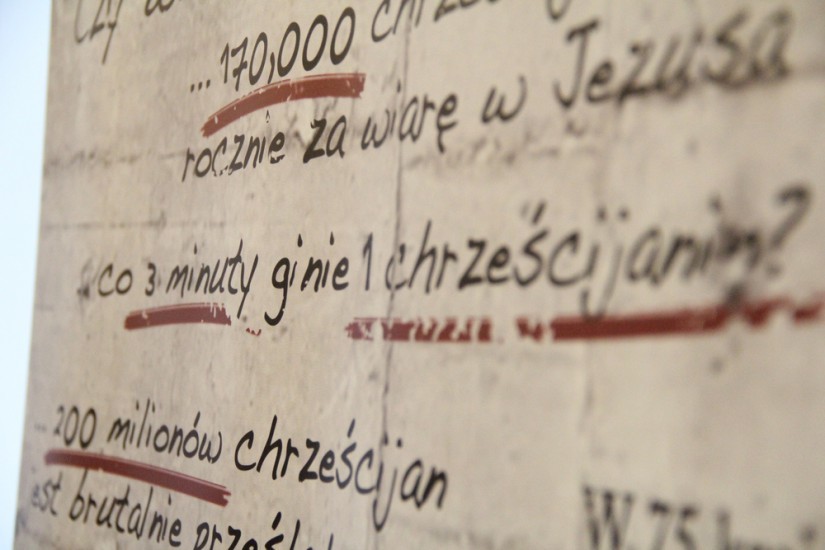 Czy w
... 170,000
rocznie za wiarę w Jezusa
... co 3 minuty ginie 1 chrześcijanin?
... 200 milionów chrześcijan
jest brutalnie
W 75